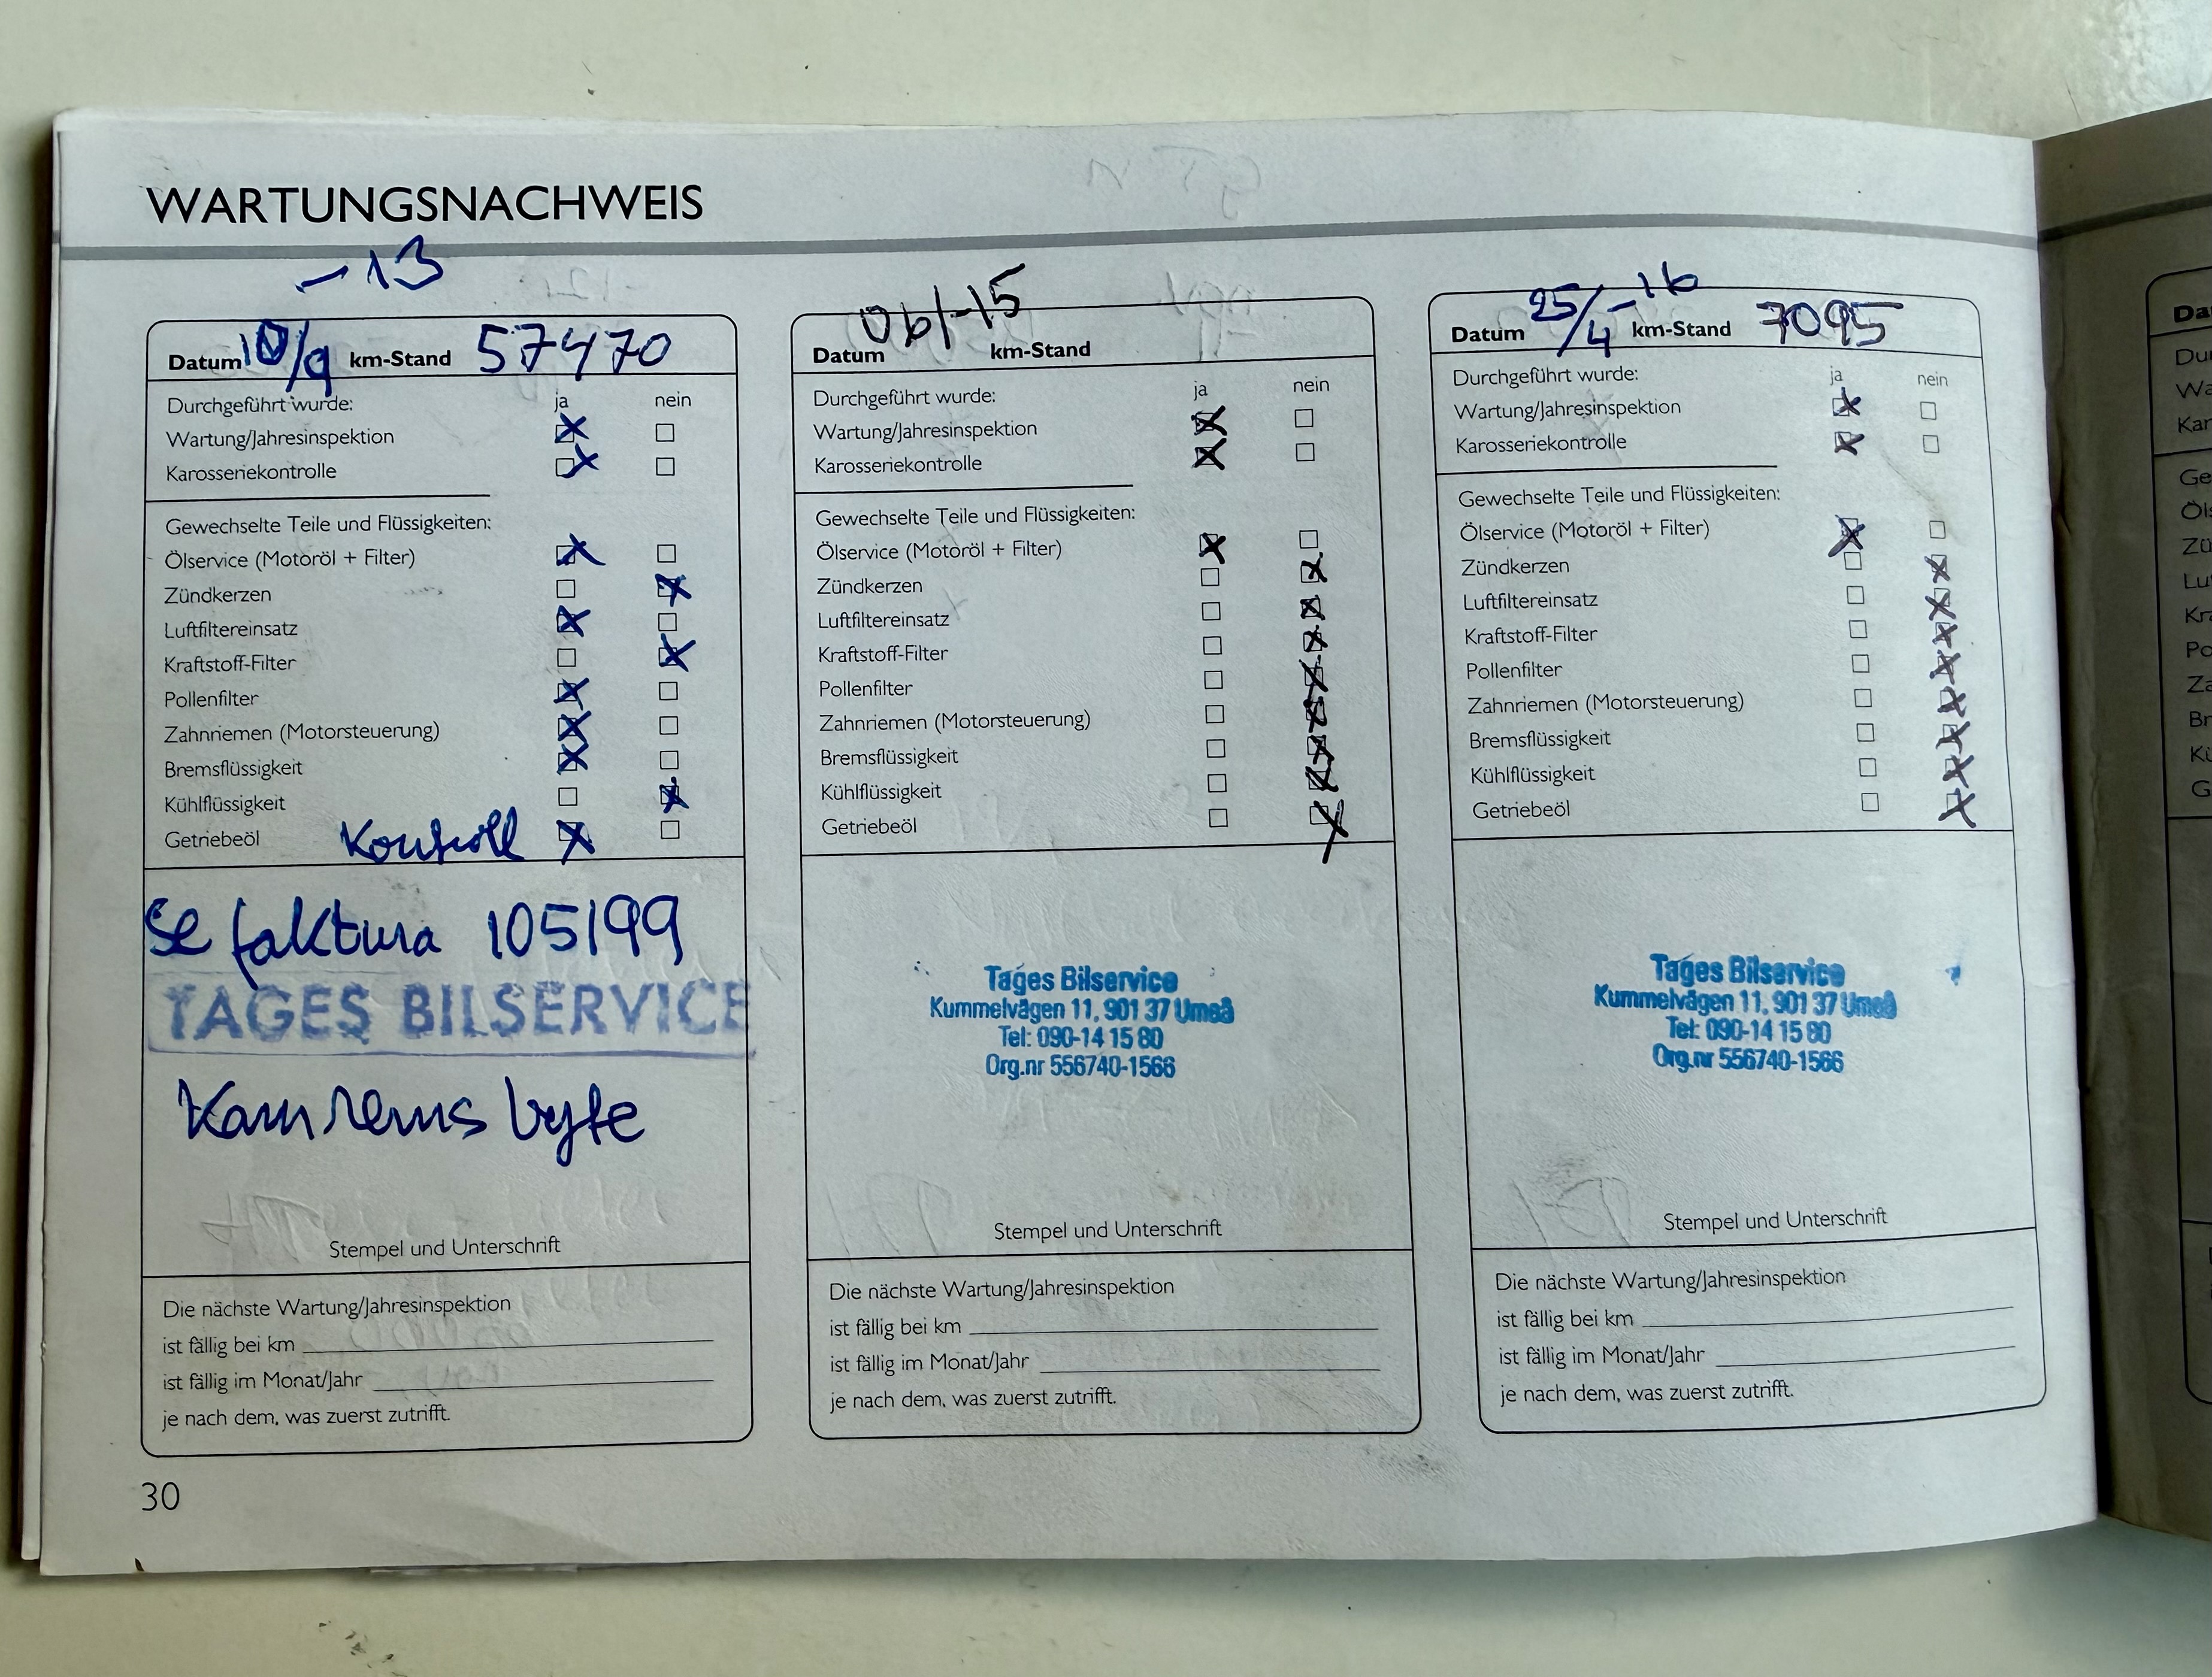 WARTUNGSNACHWEIS
-13
Datum 10/9 km-Stand 57470
Durchgeführt wurde: ja nein
Wartung/Jahresinspektion
Karosseriekontrolle
Gewechselte Teile und Flüssigkeiten:
Ölservice (Motoröl + Filter)
Zündkerzen
Luftfiltereinsatz
Kraftstoff-Filter
Pollenfilter
Zahnriemen (Motorsteuerung)
Bremsflüssigkeit
Kühlflüssigkeit
Getriebeöl Kontroll
Se faktura 105199
TAGES BILSERVICE
Kamrems byte
Stempel und Unterschrift
Die nächste Wartung/Jahresinspektion
ist fällig bei km
ist fällig im Monat/Jahr
je nach dem, was zuerst zutrifft.
30
06/-15
Datum km-Stand
Durchgeführt wurde: ja nein
Wartung/Jahresinspektion
Karosseriekontrolle
Gewechselte Teile und Flüssigkeiten:
Ölservice (Motoröl + Filter)
Zündkerzen
Luftfiltereinsatz
Kraftstoff-Filter
Pollenfilter
Zahnriemen (Motorsteuerung)
Bremsflüssigkeit
Kühlflüssigkeit
Getriebeöl
Tages Bilservice
Kummelvägen 11, 901 37 Umeå
Tel: 090-14 15 80
Org.nr 556740-1566
Stempel und Unterschrift
Die nächste Wartung/Jahresinspektion
ist fällig bei km
ist fällig im Monat/Jahr
je nach dem, was zuerst zutrifft.
Datum 25/4 -16 km-Stand 7095
Durchgeführt wurde: ja nein
Wartung/Jahresinspektion
Karosseriekontrolle
Gewechselte Teile und Flüssigkeiten:
Ölservice (Motoröl + Filter)
Zündkerzen
Luftfiltereinsatz
Kraftstoff-Filter
Pollenfilter
Zahnriemen (Motorsteuerung)
Bremsflüssigkeit
Kühlflüssigkeit
Getriebeöl
Tages Bilservice
Kummelvägen 11, 901 37 Umeå
Tel: 090-14 15 80
Org.nr 556740-1566
Stempel und Unterschrift
Die nächste Wartung/Jahresinspektion
ist fällig bei km
ist fällig im Monat/Jahr
je nach dem, was zuerst zutrifft.